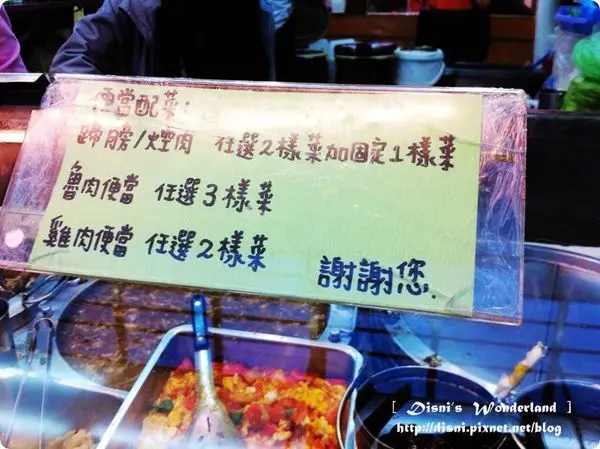 便當配菜:
蹄膀/焢肉 任選2樣菜加固定1樣菜
魯肉便當 任選3樣菜
雞肉便當 任選2樣菜
謝謝您.
[ Disni's Wonderland ]
http://disni.pixnet.net/blog